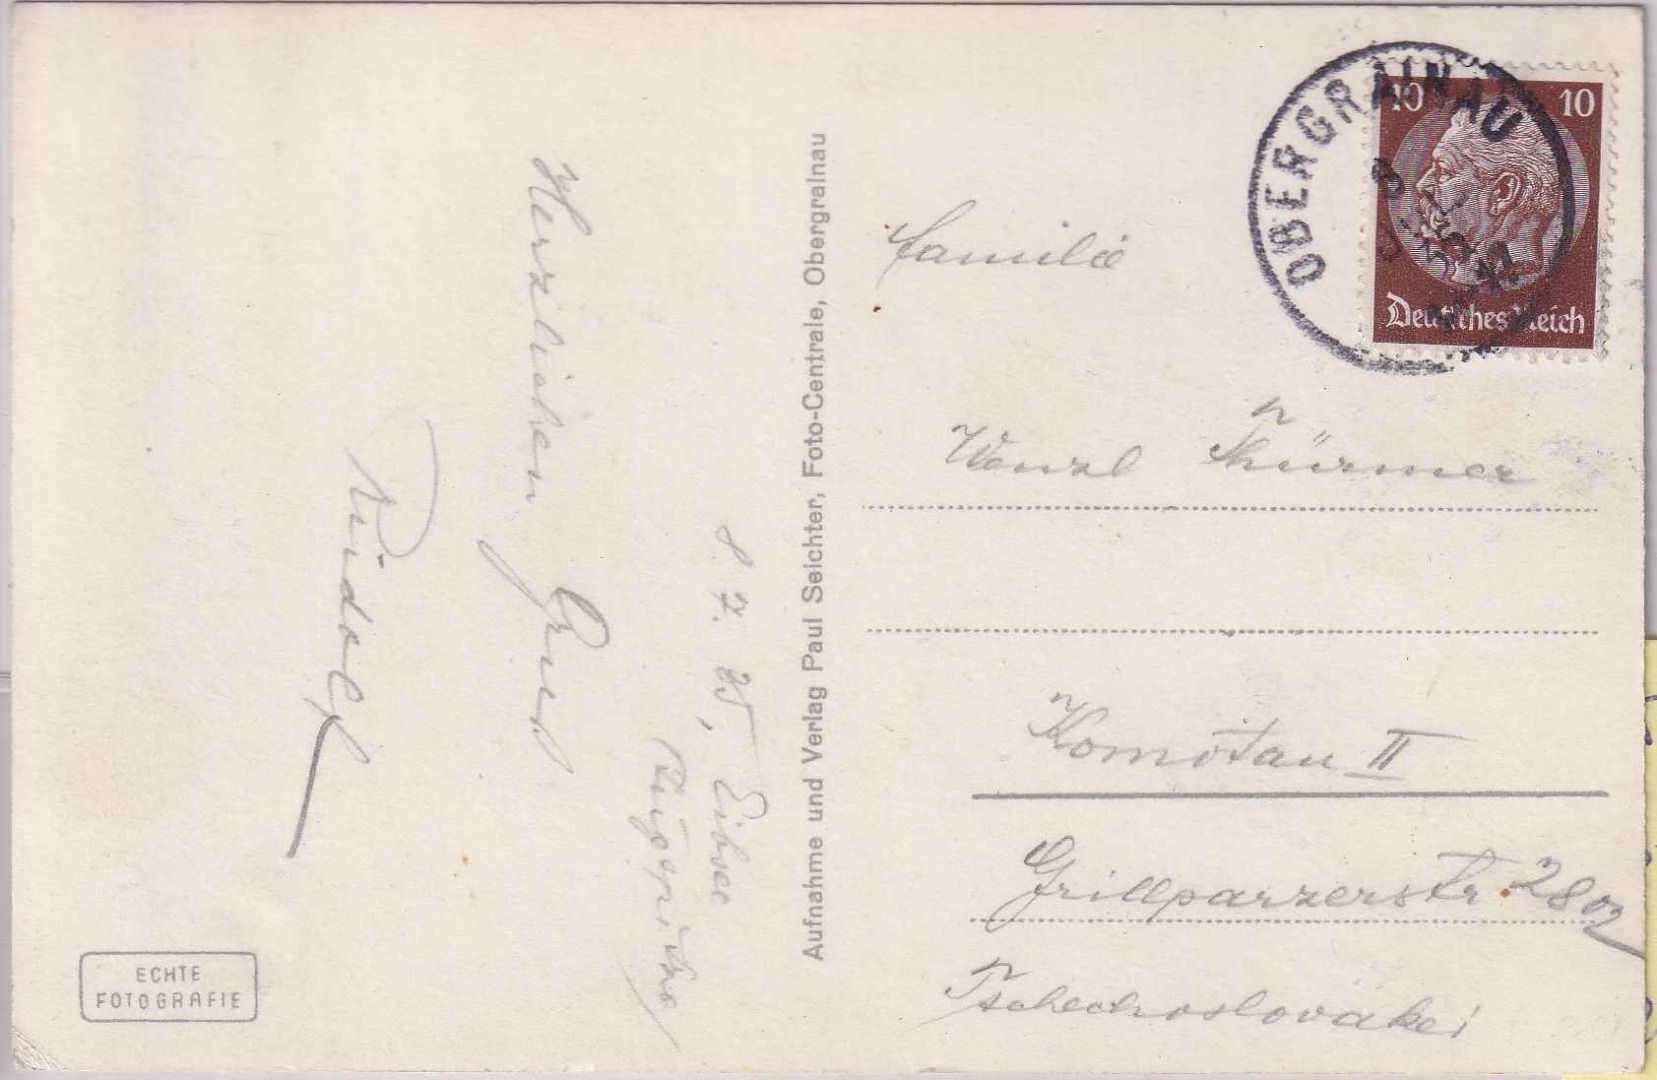 8. 7. 35, Eibsee
Zugspitze
Herzlichen Gruß
Rudolf
Aufnahme und Verlag Paul Seichter, Foto-Centrale, Obergrainau
ECHTE
FOTOGRAFIE
OBERGRAINAU
10 10
Deutsches Reich
Familie
Wenzl Thürmer
Komotau II
Grillparzerstr.
Tschechoslovakei